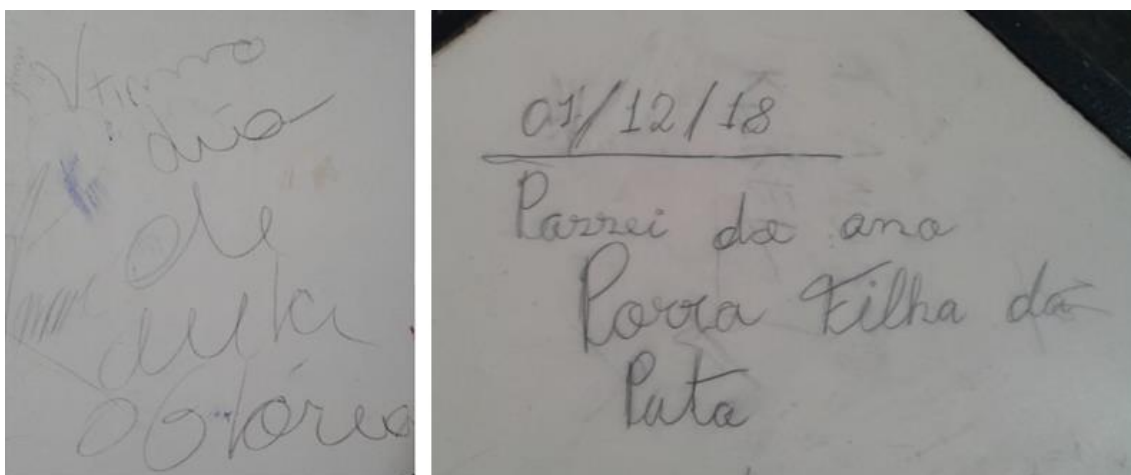 Vtimo
dia
de
aula
o Glória
01/12/18
Passei de ano
Porra Filha da
Puta